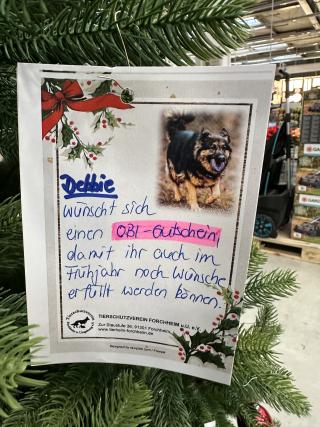 Debbie
wünscht sich
einen OBI-Gutschein,
damit ihr auch im
Frühjahr noch Wünsche
erfüllt werden können.
TIERSCHUTZVEREIN FORCHHEIM u.U. e.V.
Zur Staustufe 36, 91301 Forchheim
www.tierheim-forchheim.de